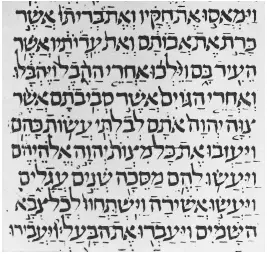 וימאסו את חקיו ואת בריתו אשר
כרת את אבותם ואת עדותיו אשר
העיד בם וילכו אחרי ההבל ויהבלו
ואחרי הגוים אשר סביבתם אשר
צוה יהוה אתם לבלתי עשות כהם
ויעזבו את כל מצות יהוה אלהיהם
ויעשו להם מסכה שנים עגלים
ויעשו אשירה וישתחוו לכל צבא
השמים ויעבדו את הבעל ויעבירו